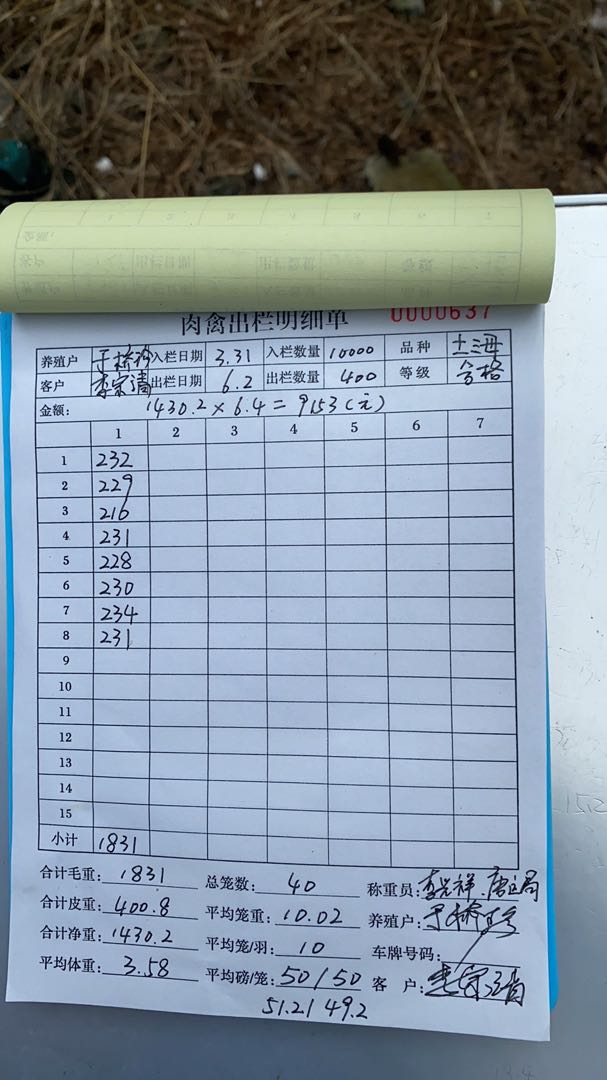 肉禽出栏明细单 0000637
养殖户 入栏日期 3.31 入栏数量 10000 品种 土三母
客户 李宗清 出栏日期 6.2 出栏数量 400 等级 合格
金额: 1430.2×6.4=9153(元)
1 2 3 4 5 6 7
1 232
2 229
3 216
4 231
5 228
6 230
7 234
8 231
9
10
11
12
13
14
15
小计 1831
合计毛重: 1831 总笼数: 40 称重员:
合计皮重: 400.8 平均笼重: 10.02 养殖户:
合计净重: 1430.2 平均笼/羽: 10 车牌号码:
平均体重: 3.58 平均磅/笼: 50/50 客 户:
51.2/49.2